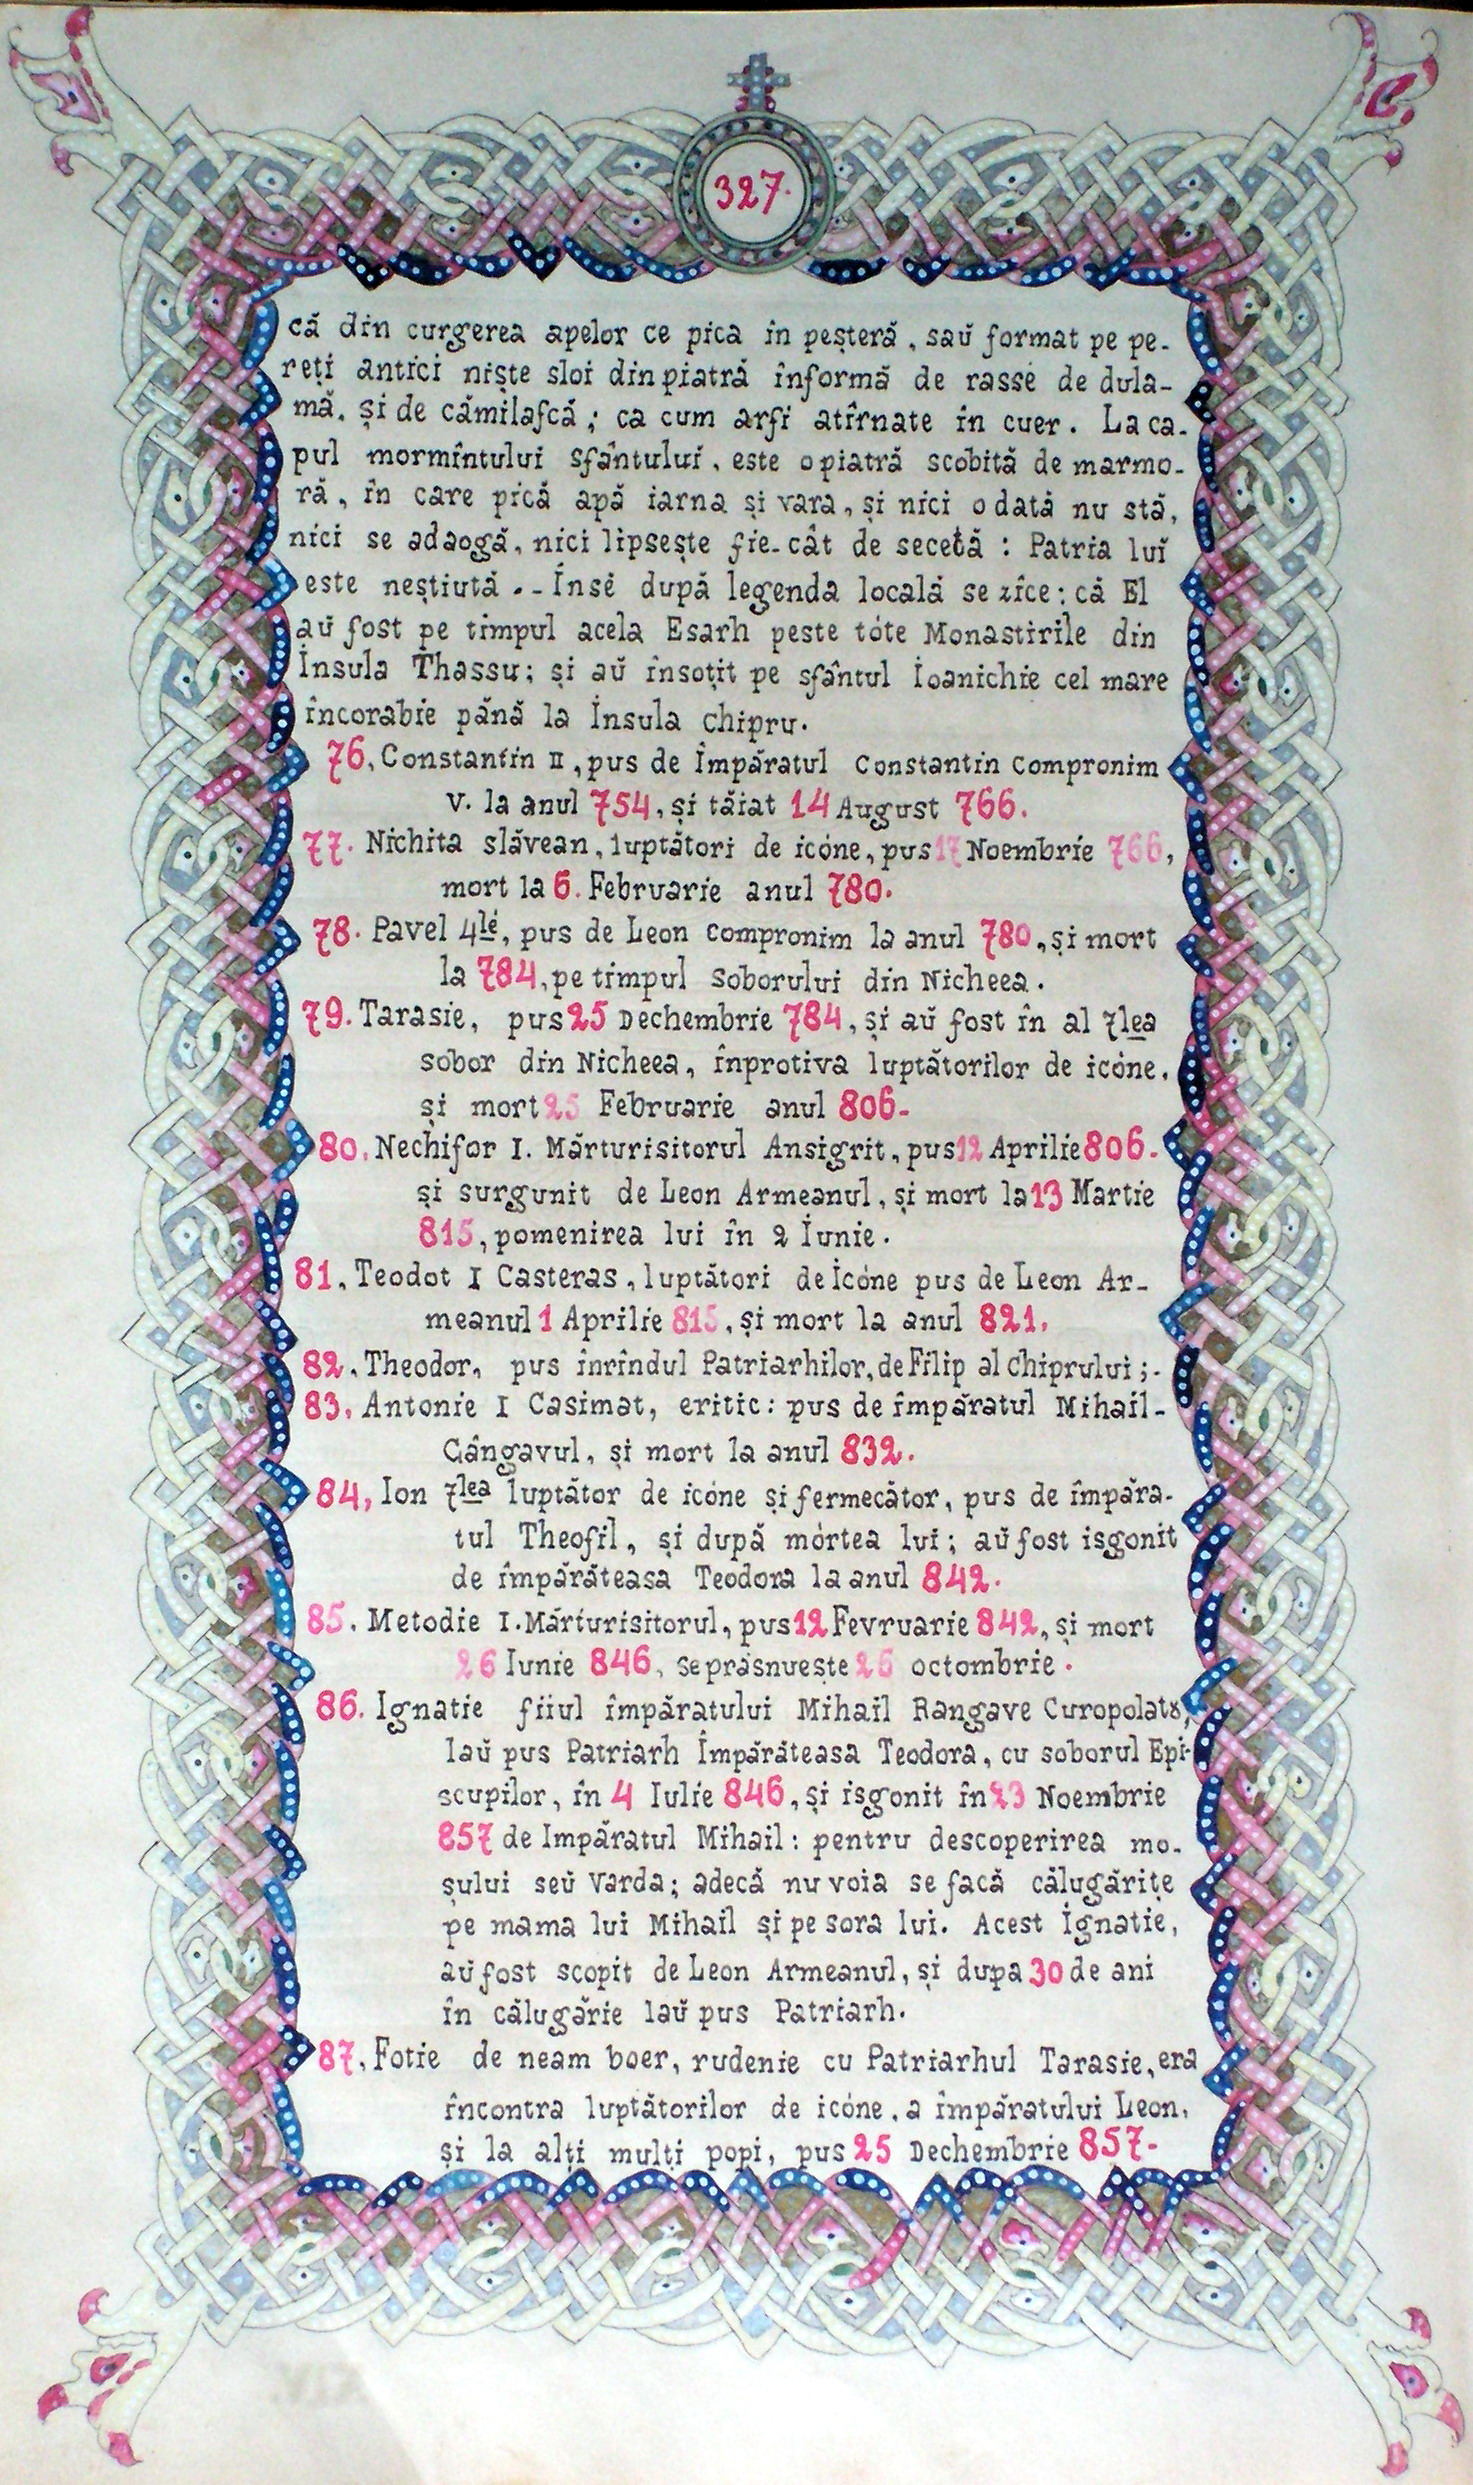 327.
că din curgerea apelor ce pica în peșteră, saŭ format pe pe-
reți antici niște sloi din piatră înformă de rasse de dula-
mă, și de cămilafcă; ca cum arfi atîrnate în cuer. La ca-
pul mormîntului sfântului, este o piatră scobită de marmo-
ră, în care pică apă iarna și vara, și nici odată nu stă,
nici se adaogă, nici lipsește fie-cât de secetă: Patria luĭ
este neștiută.- Însé după legenda locală se zîce: că El
aŭ fost pe timpul acela Esarh peste tóte Monastirile din
Însula Thassu; și aŭ însoțit pe sfântul Ioanichie cel mare
încorabie până la Însula chipru.
76. Constantin II, pus de Împăratul Constantin Compronim
V. la anul 754, și tăiat 14 August 766.
77. Nichita slăvean, luptători de icóne, pus 17 Noembrie 766,
mort la 6. Februarie anul 780.
78. Pavel 4lé, pus de Leon Compronim la anul 780, și mort
la 784, pe timpul soborului din Nicheea.
79. Tarasie, pus 25 Dechembrie 784, și aŭ fost în al 7lea
sobor din Nicheea, înprotiva luptătorilor de icóne,
și mort 25 Februarie anul 806-
80. Nechifor I. Mărturisitorul Ansigrit, pus 12 Aprilie 806-
și surgunit de Leon Armeanul, și mort la 13 Martie
815, pomenirea lui în 2 Iunie.
81. Teodot I Casteras, luptători de Icóne pus de Leon Ar-
meanul 1 Aprilie 815, și mort la anul 821.
82. Theodor, pus înrîndul Patriarhilor, de Filip al Chiprului;.
83, Antonie I Casimat, eritic: pus de împăratul Mihail-
Gângavul, și mort la anul 832.
84, Ion 7lea luptător de icóne și fermecător, pus de împăra-
tul Theofil, și după mórtea lui; aŭ fost isgonit
de împărăteasa Teodora la anul 842.
85. Metodie I. Mărturisitorul, pus 12 Fevruarie 842, și mort
26 Iunie 846, se prăsnuește 26 octombrie.
86. Ignatie fiiul împăratului Mihail Rangave Curopolatȣ,
laŭ pus Patriarh Împărăteasa Teodora, cu soborul Epi-
scupilor, în 4 Iulie 846, și isgonit în 23 Noembrie
857 de Impăratul Mihail: pentru descoperirea mo-
șului seŭ Varda; adecă nu voia se facă călugărițe
pe mama lui Mihail și pe sora lui. Acest Ignatie,
aŭ fost scopit de Leon Armeanul, și dupa 30 de ani
în călugărie laŭ pus Patriarh.
87, Fotie de neam boer, rudenie cu Patriarhul Tarasie, era
încontra luptătorilor de icóne, a împăratului Leon,
și la alți mulți popi, pus 25 Dechembrie 857-